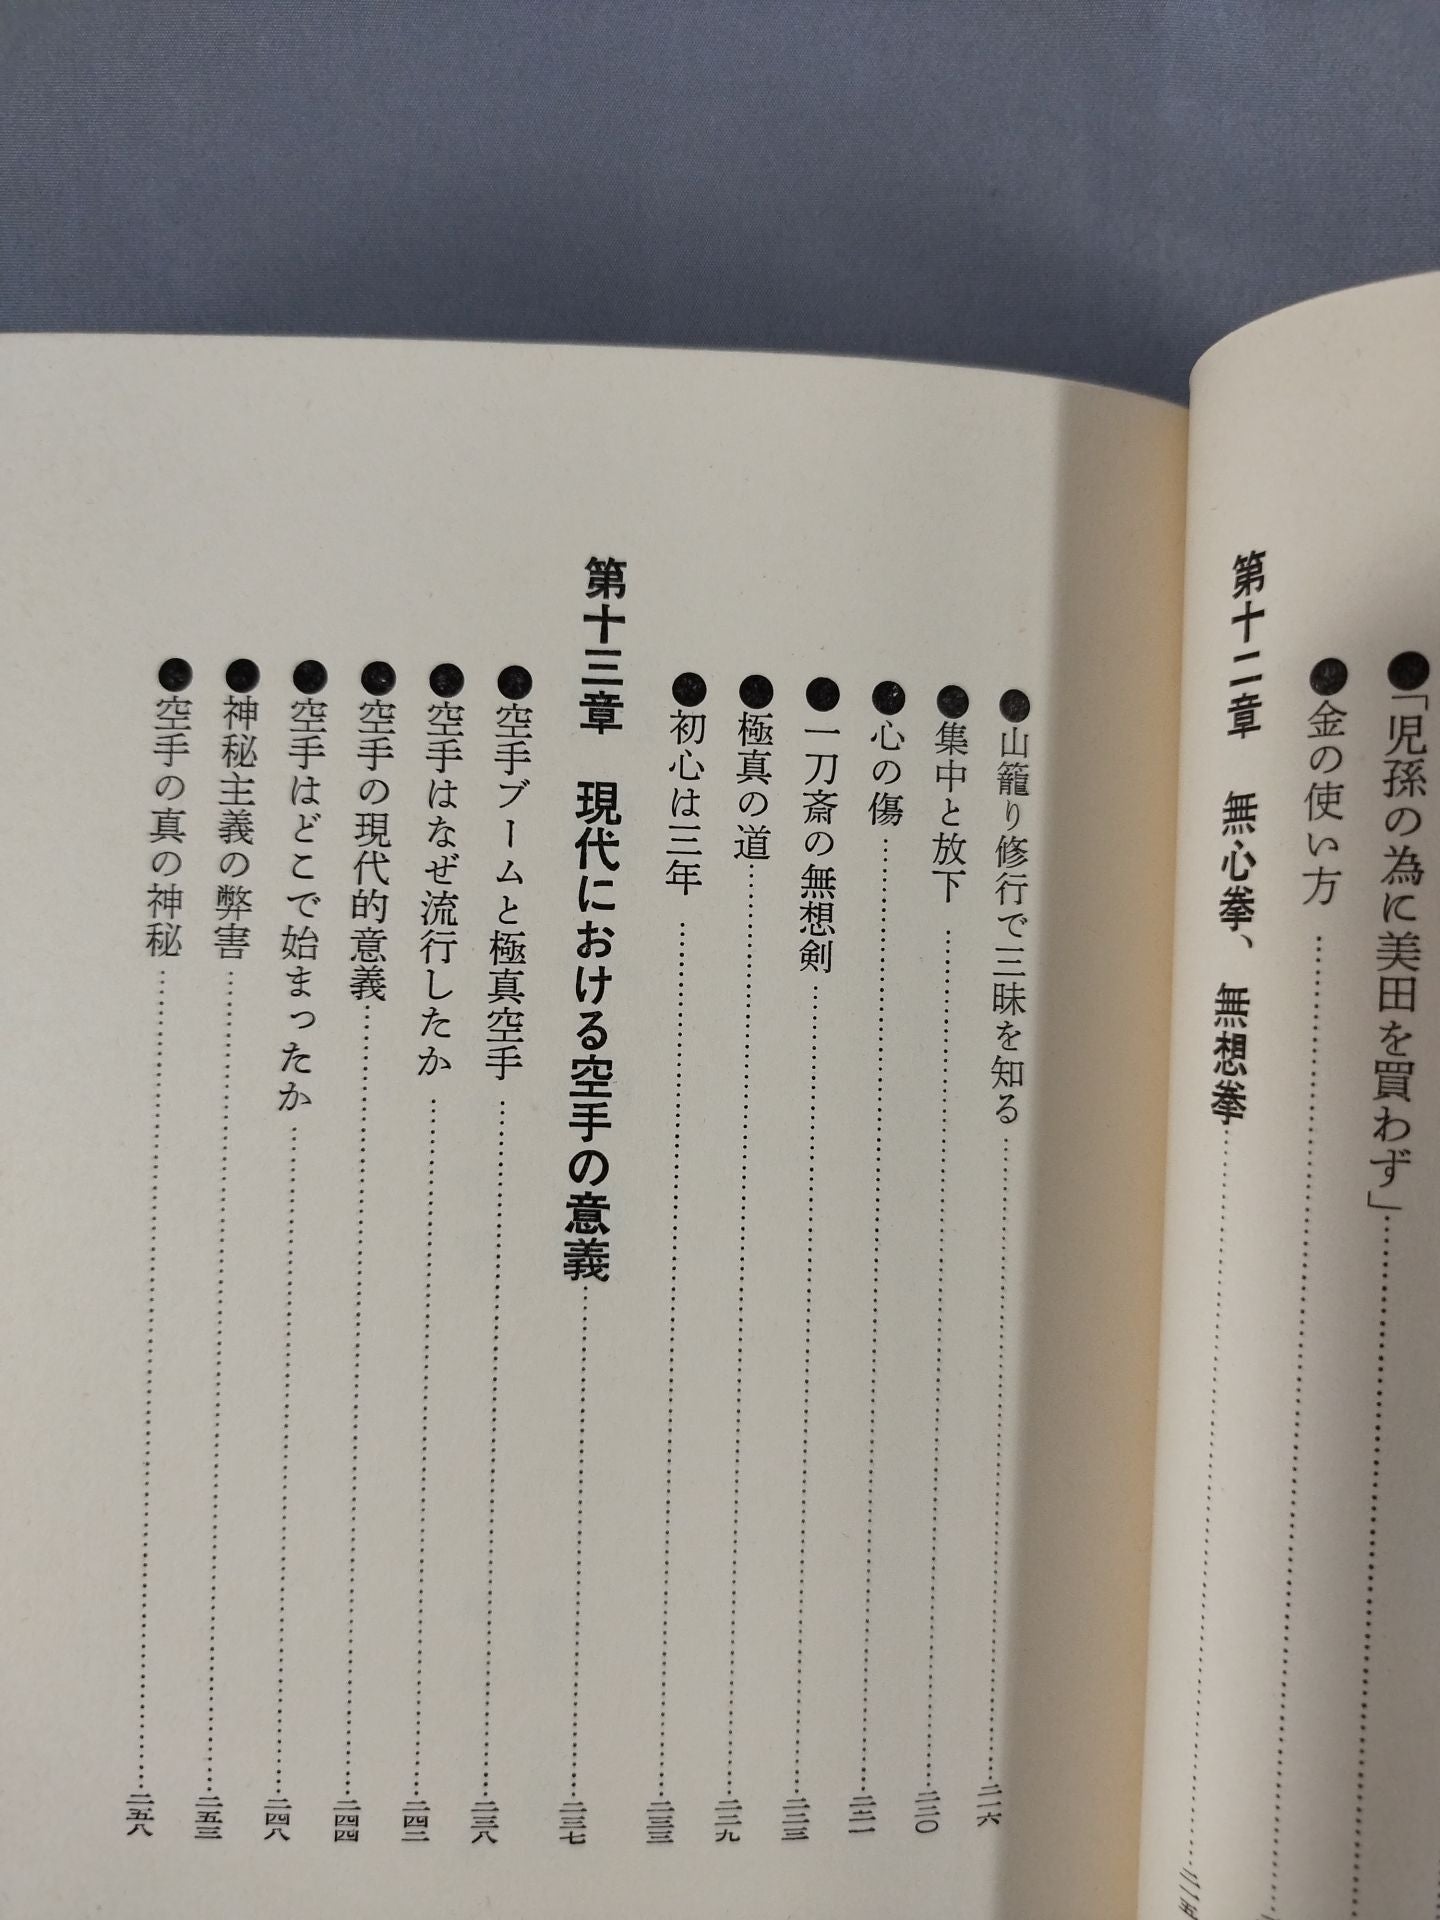 ●「児孫の為に美田を買わず」
●金の使い方
第十二章　無心拳、無想拳 二一五
●山籠り修行で三昧を知る 二一六
●集中と放下 二二〇
●心の傷 二二一
●一刀斎の無想剣 二二三
●極真の道 二二九
●初心は三年 二三三
第十三章　現代における空手の意義 二三七
●空手ブームと極真空手 二三八
●空手はなぜ流行したか 二四二
●空手の現代的意義 二四四
●空手はどこで始まったか 二四八
●神秘主義の弊害 二五三
●空手の真の神秘 二五八